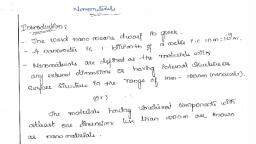 Nanomaterials
Introduction:
- The word nano means dwarf in greek.
- A nanometer is 1 billionth of a metre i.e 1nm = 10⁻⁹m.
- Nanomaterials are defined as the materials with
any external dimensions or having internal structure or
surface structure in the range of 1nm - 100nm (nanoscale).
(or)
The materials having structural components with
atleast one dimension less than 100nm are known
as nanomaterials.